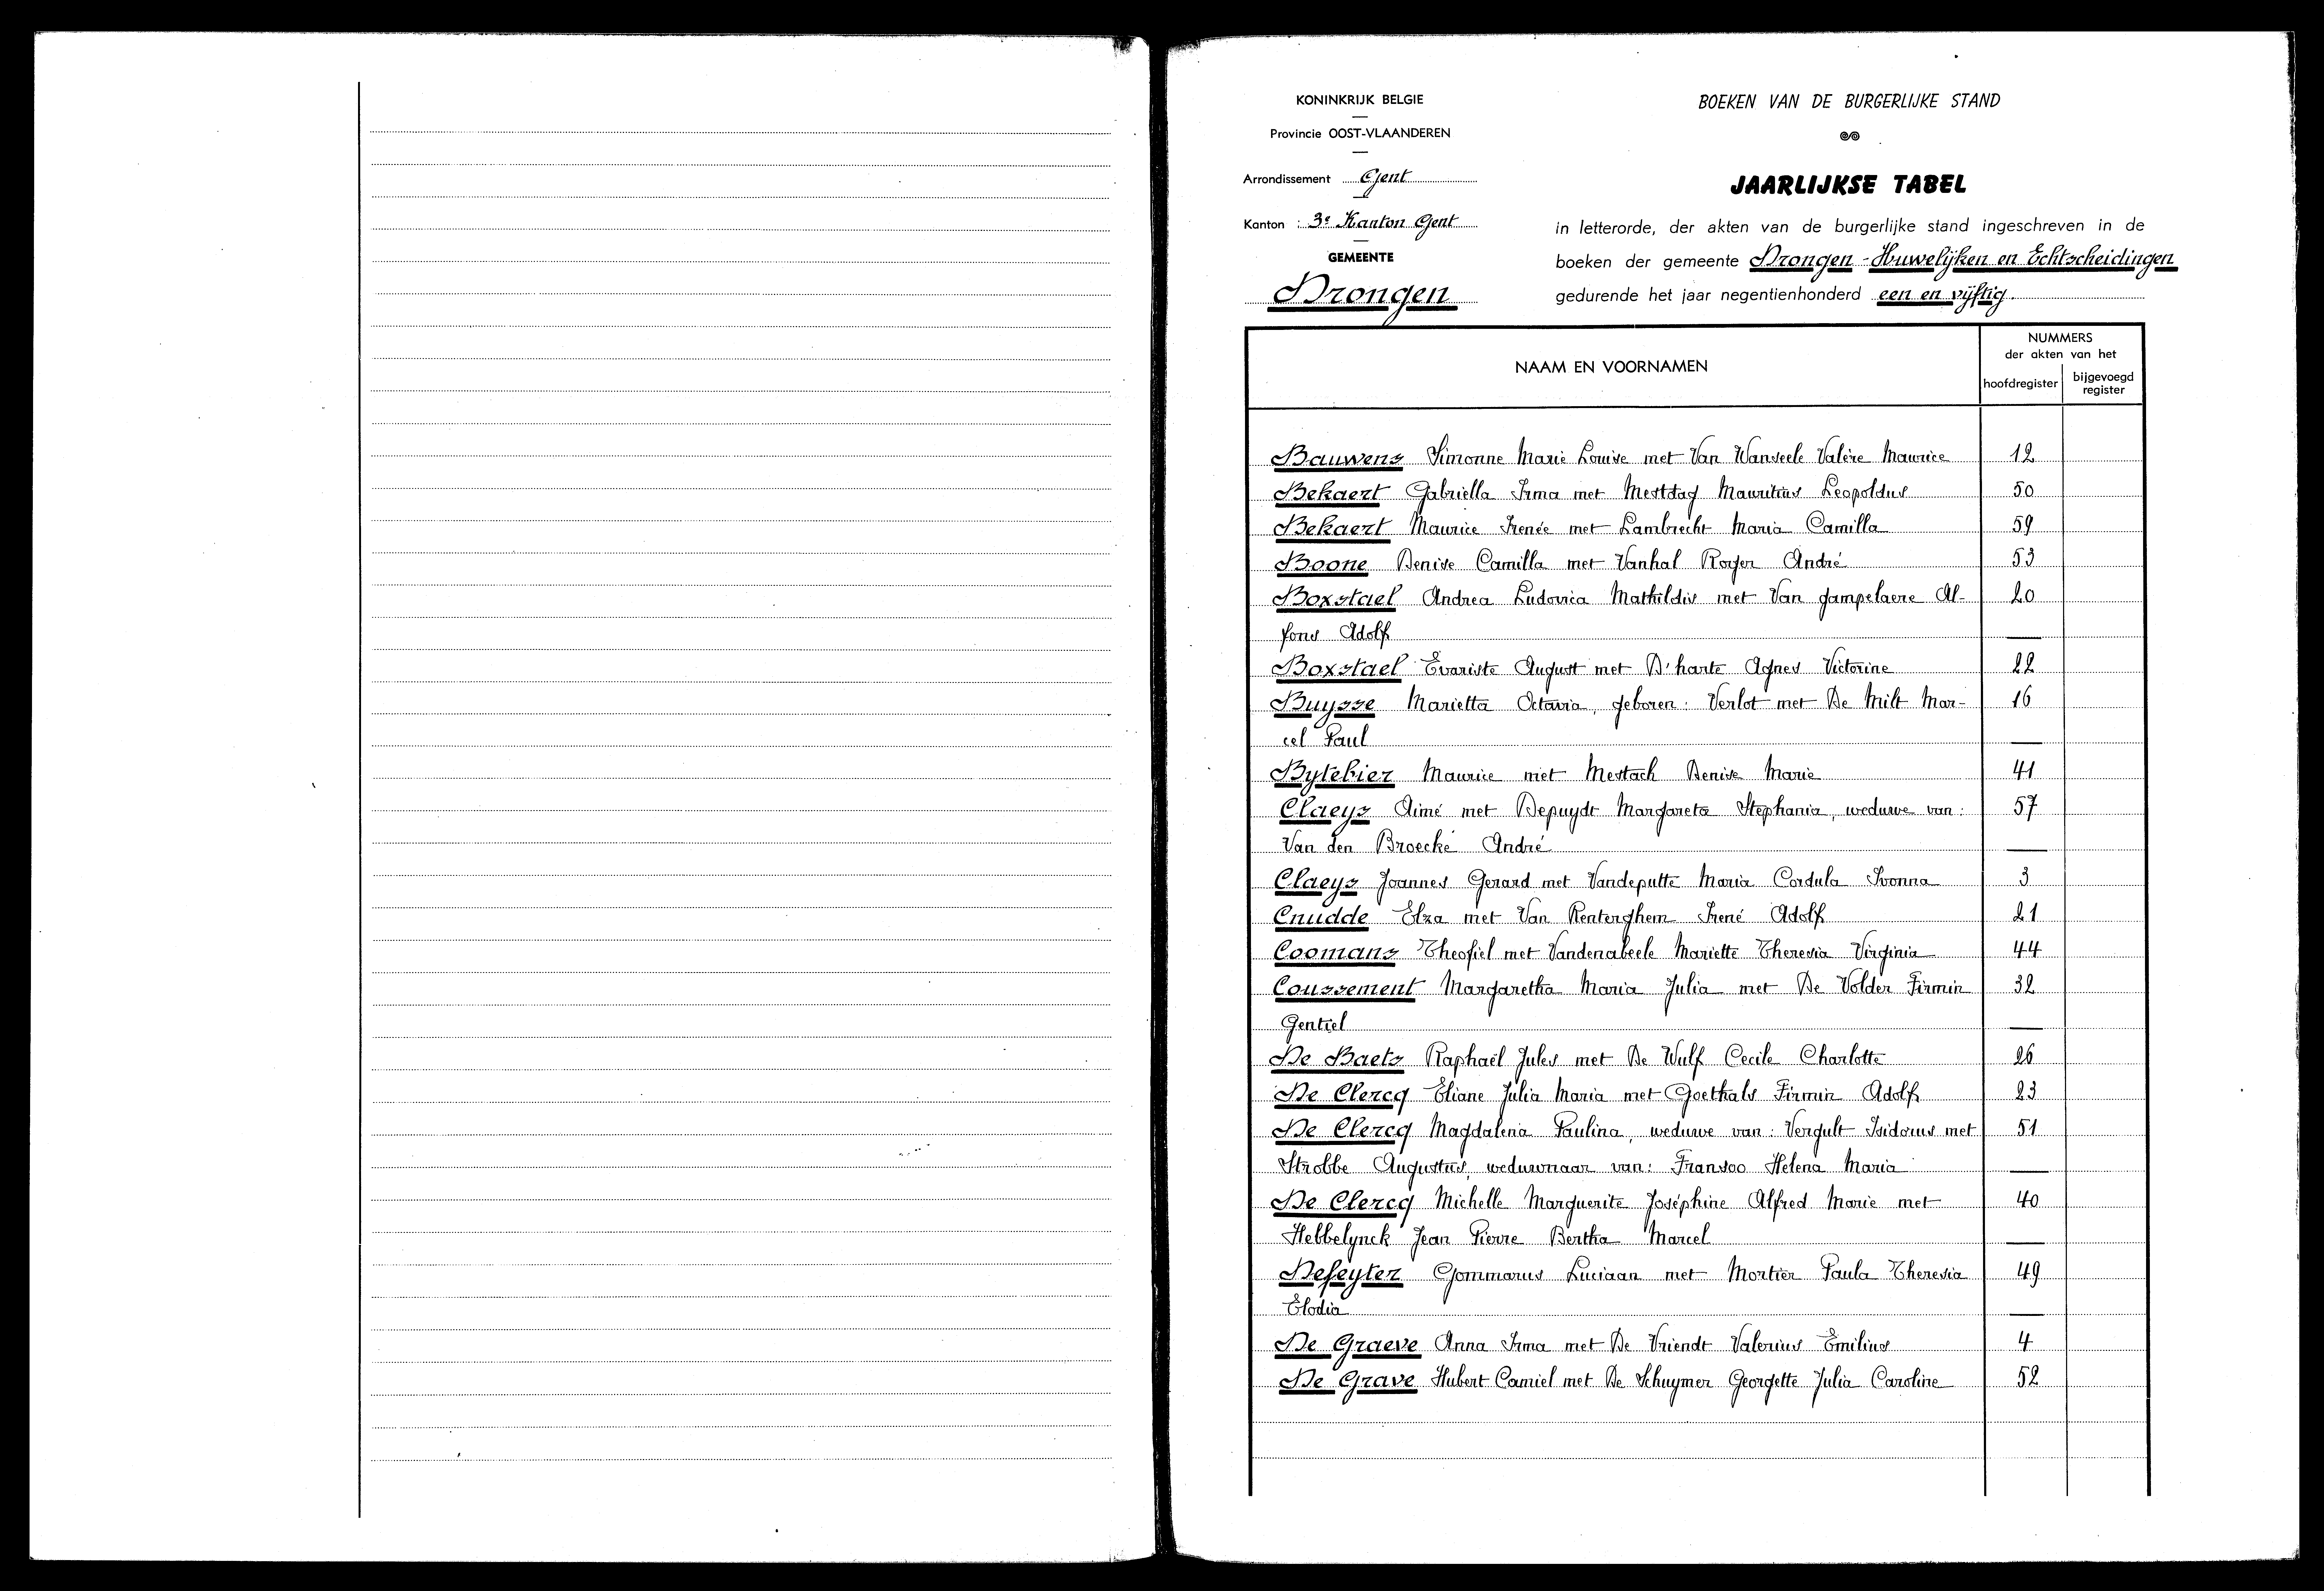 KONINKRIJK BELGIE
Provincie OOST-VLAANDEREN
Arrondissement Gent
Kanton : 3e Kanton Gent
GEMEENTE
Drongen
BOEKEN VAN DE BURGERLIJKE STAND
JAARLIJKSE TABEL
in letterorde, der akten van de burgerlijke stand ingeschreven in de
boeken der gemeente Drongen - Huwelijken en Echtscheidingen
gedurende het jaar negentienhonderd een en vijftig.
NAAM EN VOORNAMEN
NUMMERS
der akten van het
hoofdregister
bijgevoegd
register
Bauwens Simonne Marie Louise met Van Wanseele Valère Maurice 12
Bekaert Gabriella Irma met Mestdag Mauritius Leopoldus 50
Bekaert Maurice Irenée met Lambrecht Maria Camilla 59
Boone Denise Camilla met Vanhal Roger André 53
Boxstael Andrea Ludovica Mathildis met Van gampelaere Al- 20
fons Adolf —
Boxstael Evariste August met D'harte Agnes Victorine 22
Buysse Marietta Octavia, geboren: Verlot met De Milt Mar- 16
cel Paul —
Bytebier Maurice met Mestach Denise Marie 41
Claeys Aimé met Depuydt Margareta Stephania, weduwe van: 57
Van den Broecke André —
Claeys Joannes Gerard met Vandeputte Maria Cordula Ivonna 3
Cnudde Elza met Van Renterghem Irené Adolf 21
Coomans Theofiel met Vandenabeele Mariette Theresia Virginia 44
Coussement Margaretha Maria Julia met De Volder Firmin 32
Gentiel —
De Baets Raphaël Jules met De Wulf Cecile Charlotte 26
De Clercq Eliane Julia Maria met Goethals Firmin Adolf 23
De Clercq Magdalena Paulina, weduwe van: Vergult Isidorus met 51
Strobbe Augustus, weduwnaar van: Fransoo Helena Maria —
De Clercq Michelle Marguerite Joséphine Alfred Marie met 40
Hebbelynck Jean Pierre Bertha Marcel —
Defeyter Gommarus Luciaan met Mortier Paula Theresia 49
Elodia —
De Graeve Anna Irma met De Vriendt Valerius Emilius 4
De Grave Hubert Camiel met De Schuymer Georgette Julia Caroline 52